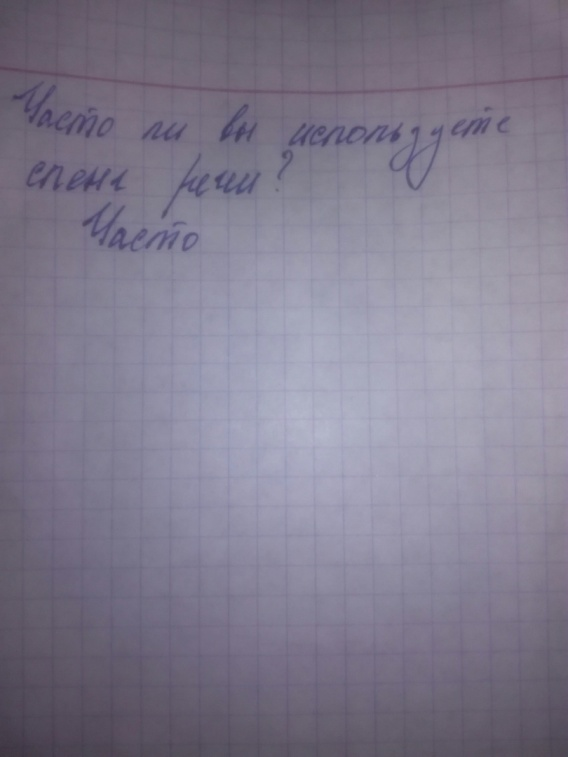 Часто ли вы используете
сленг речи?
Часто